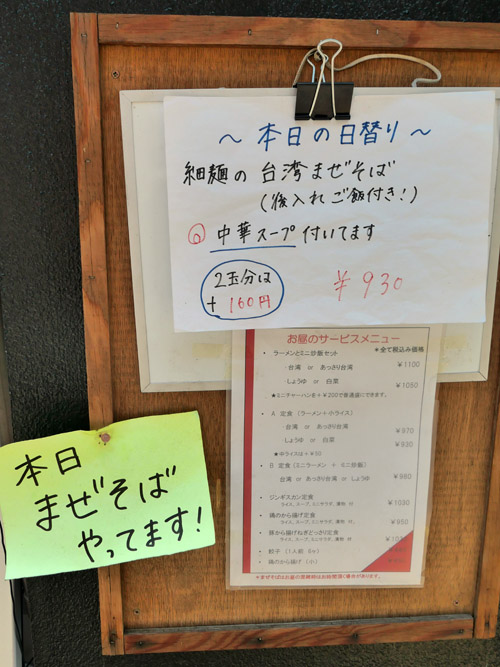 ～本日の日替り～
細麺の台湾まぜそば
(後入れご飯付き!)
中華スープ付いてます
2玉分は
+160円
¥930
お昼のサービスメニュー
・ラーメンとミニ炒飯セット ＊全て税込み価格
・台湾 or あっさり台湾 ¥1100
・しょうゆ or 白菜 ¥1050
★ミニチャーハンを+¥200で普通盛にできます。
・A 定食 (ラーメン+小ライス)
・台湾 or あっさり台湾 ¥970
・しょうゆ or 白菜 ¥930
★中ライスは+¥50
・B 定食 (ミニラーメン + ミニ炒飯)
台湾 or あっさり台湾 or しょうゆ ¥980
・ジンギスカン定食 ¥1030
ライス、スープ、ミニサラダ、漬物 付。
・鶏のから揚げ定食 ¥950
ライス、スープ、ミニサラダ、漬物 付。
・豚から揚げねぎどっさり定食
ライス、スープ、ミニサラダ、漬物 付
・餃子 (1人前 6ヶ)
・鶏のから揚げ (小)
＊まぜそばはお昼の混雑時はお時間頂く事があります。
本日
まぜそば
やってます!